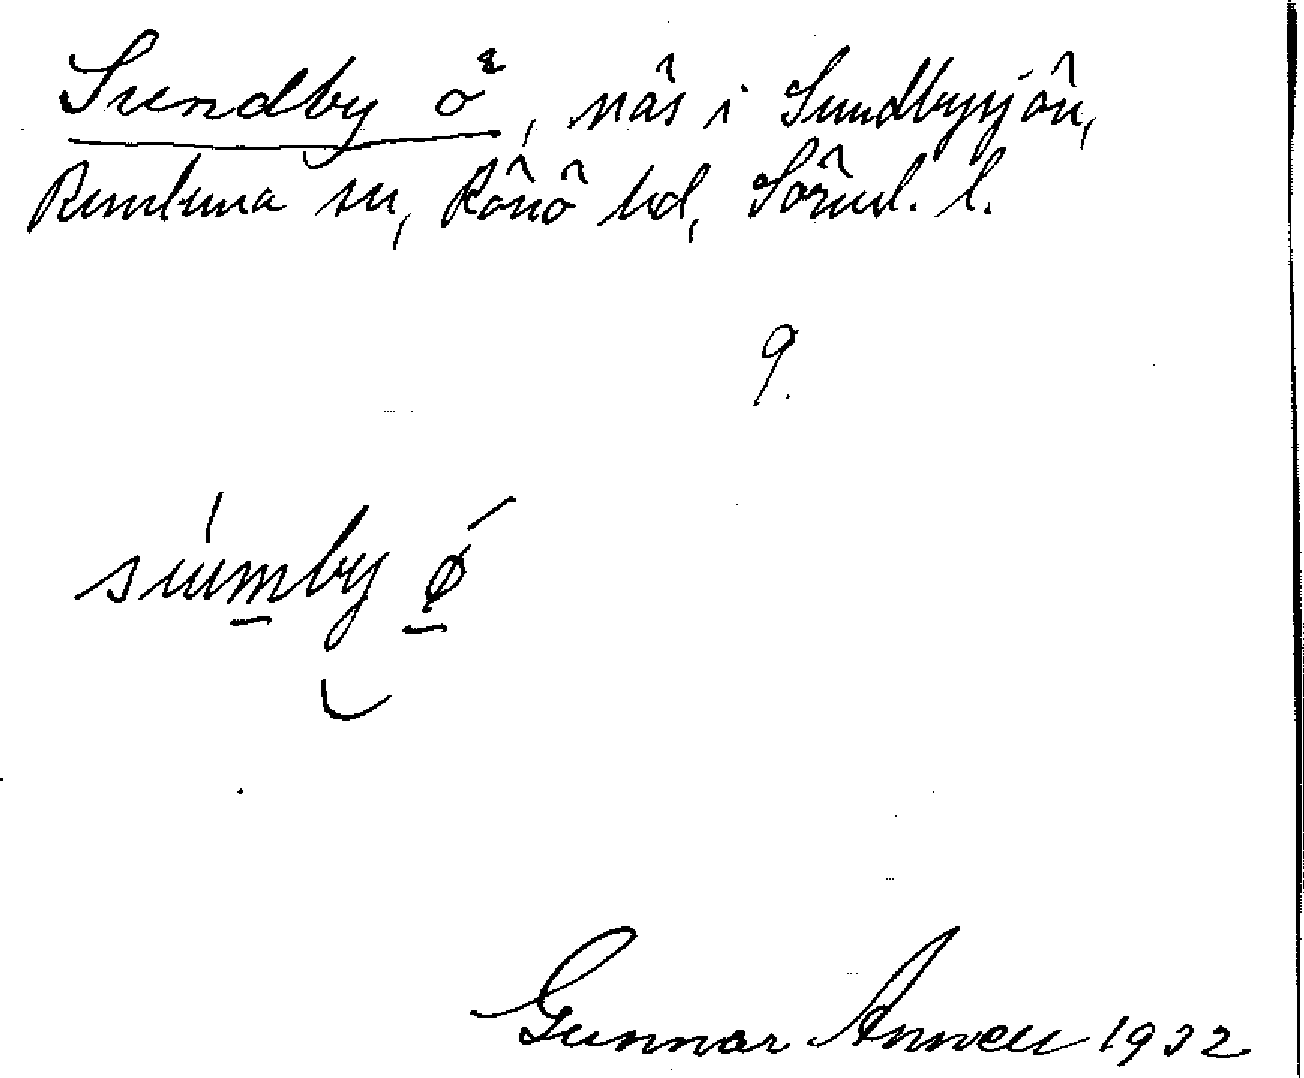 Sundby ö, näs i Sundbysjön,
Runtuna sn, Rönö hd, Sörml. l.
9.
súmby ǿ
Gunnar Annell 1932